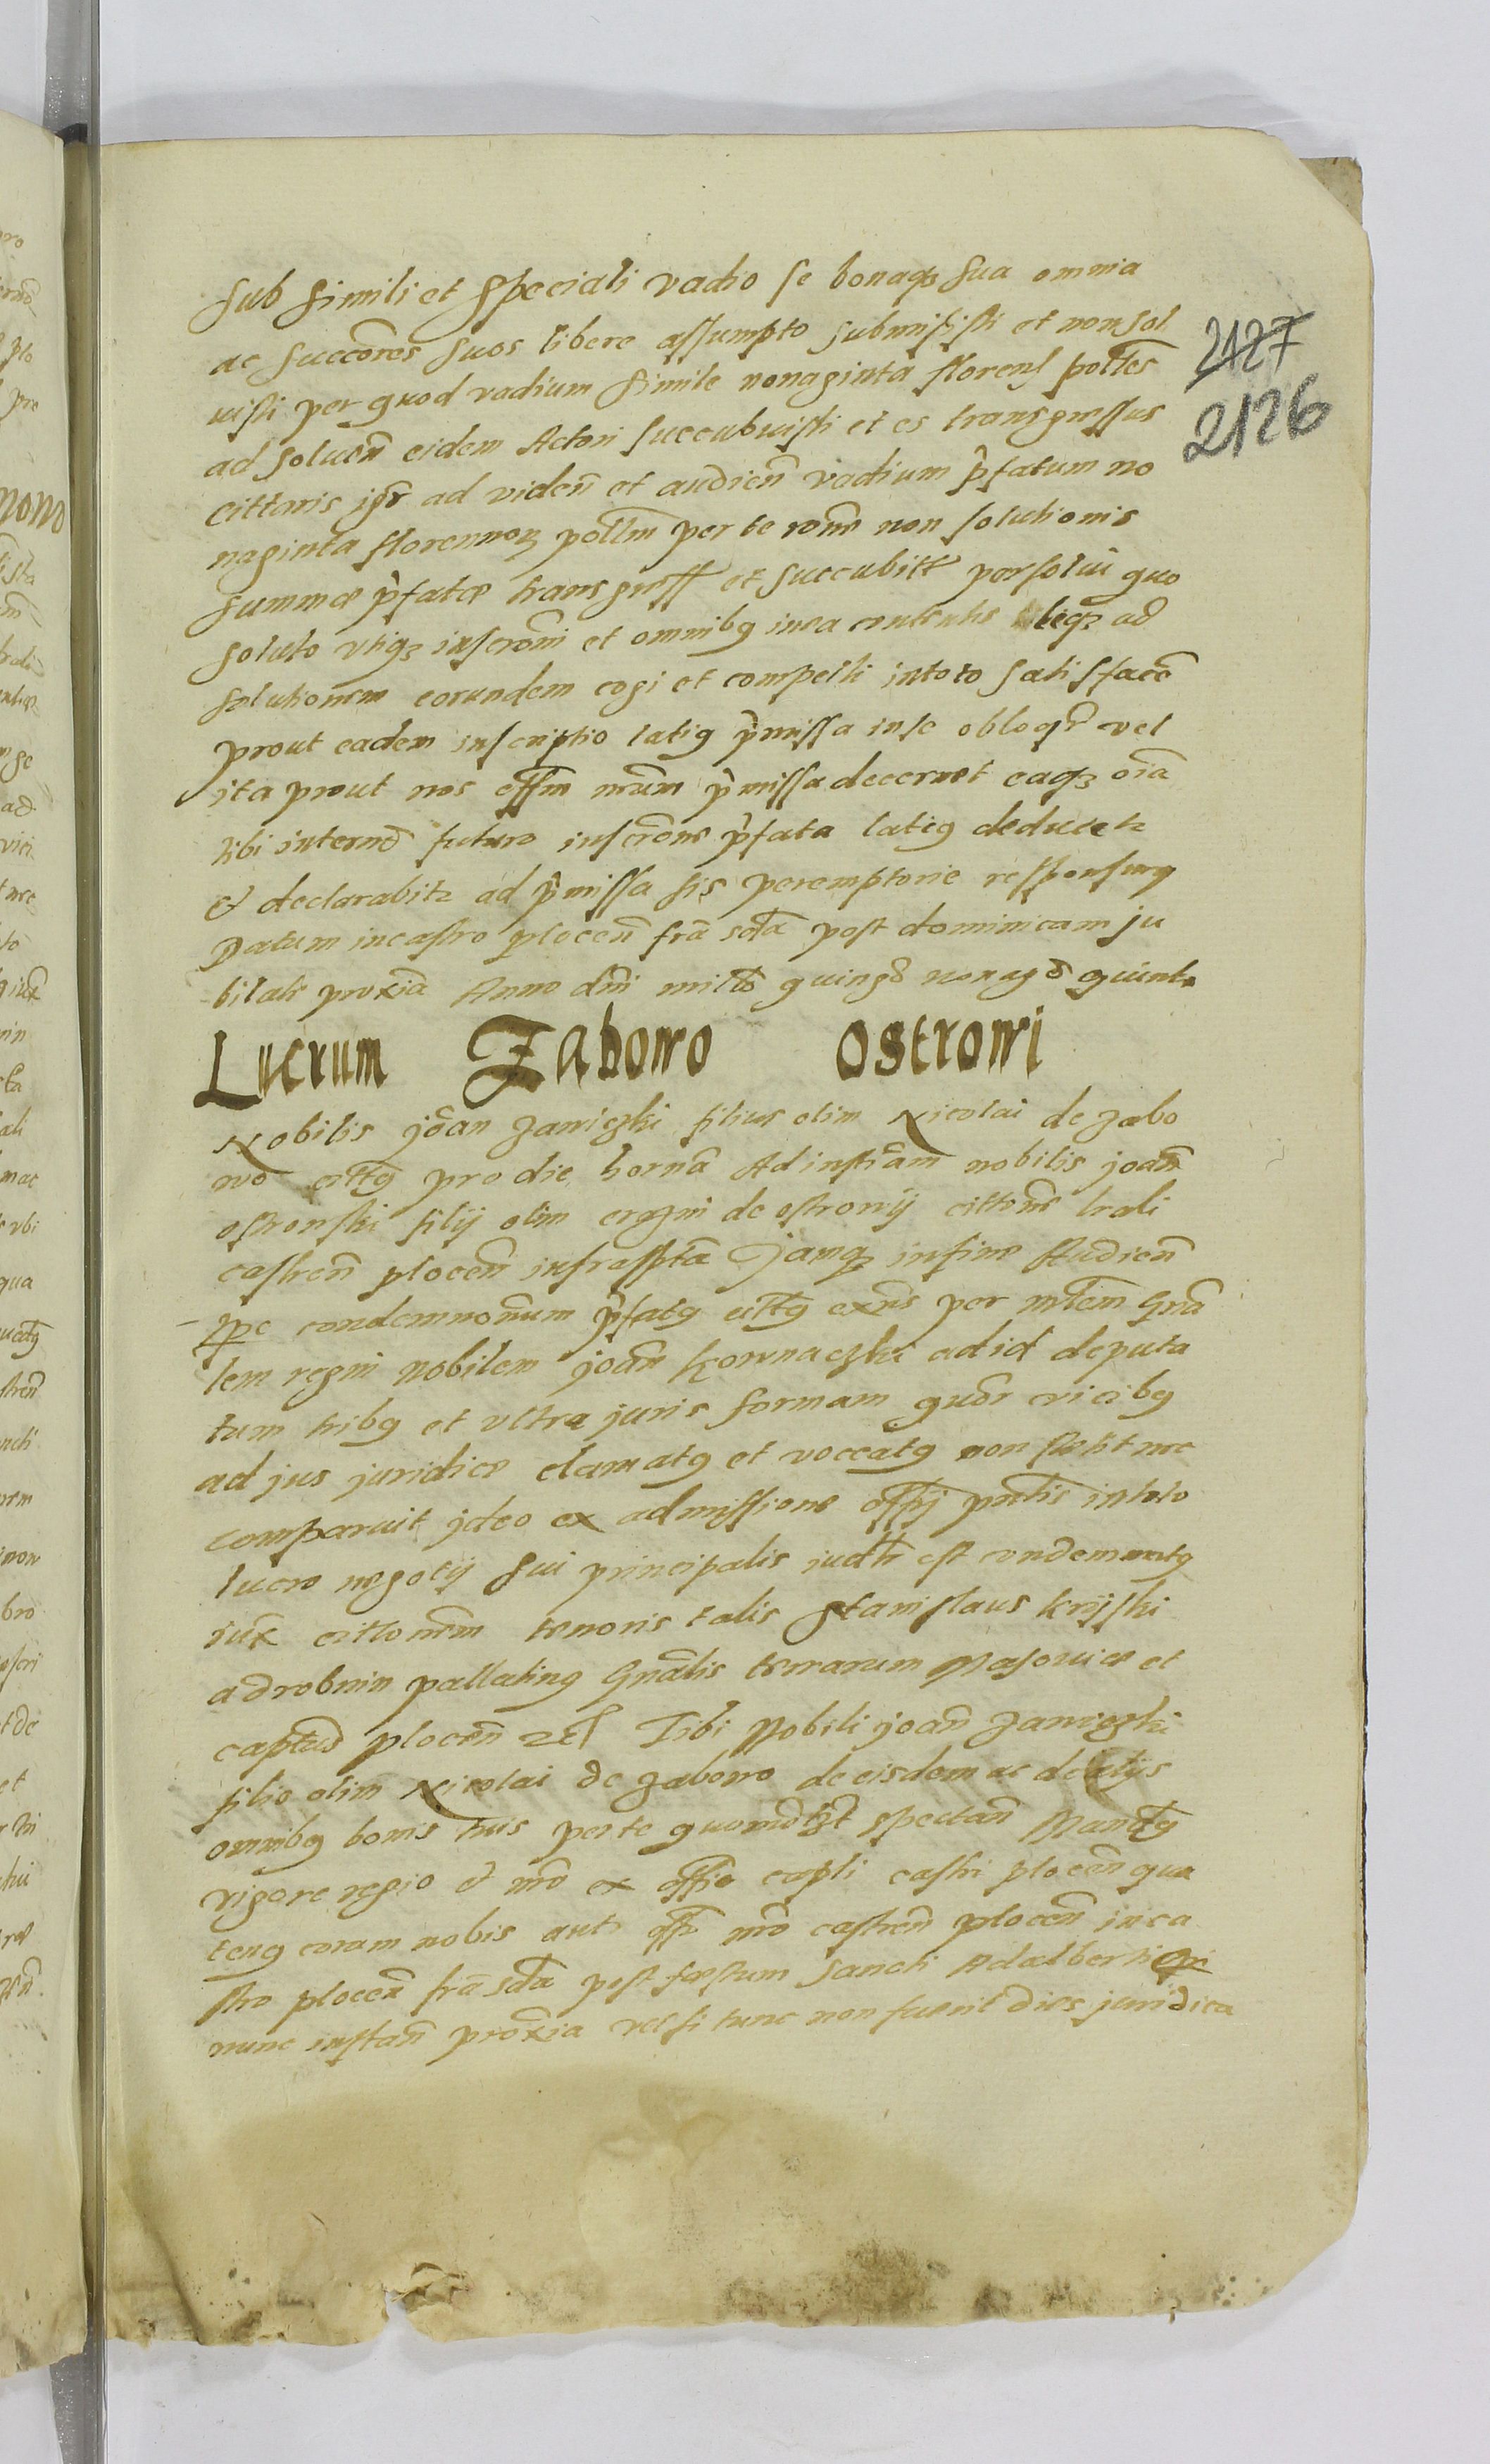 sub simili et speciali vadio se bonaqȝ sua omnia
ac succōres suos libere assumpto submisisti et non sol
uisti per quod vadium simile nonaginta florenꝭ
ad soluen̄ eidem Actori succubuisti et es transgressus
cittaris igr̄ ad viden̄ et audien̄ vadium p̄fatum no
naginta florenorȝ per te rōne non solutionis
summæ p̄fatæ transgress et succubitt persolui quo
soluto vtiqȝ inscrōni et omnibꝰ inea contentis teqȝ ad
solutionem eorundem cogi et compelli intoto satisfacē
prout eadem inscriptio latiꝰ p̄missa inse obloqr̄ vel
ita prout nos offm̄ nr̄um p̄missa decernet eaqȝ oīa
tibi intermō futuro inscrōne p̄fata latiꝰ deducetr
et declarabitr ad p̄missa sis peremptorie responsurꝰ
Datum incastro plocen̄ fr̄a sc̄da post dominicam ju
bilati proxīa Anno dn̄i mill̄o quingō nonagō quinto
Lucrum Zabowo Ostrowi
Nobilis joān Zawiczki filius olim Nicolai de Zabo
wo cittꝰ pro die hornā Ad instīam nobilis joān
ostrowski filij olim erazmi de ostrowij cittōne
castren̄ plocen̄ infrassptā Jamqȝ infine Audien̄
condemnōnum p̄fatꝰ cittꝰ exn̄s per mīlem Gn̄a
lem regni nobilem joān Kownaczki ad id deputa
tum tribꝰ et vltra juris formam quōr vicibꝰ
ad jus juridice clamatꝰ et voccatꝰ non stetit nec
comparuit jdeo ex admissione offij pn̄tis intoto
lucro negotij sui principalis est condemnatꝰ
iux̄ cittōnem tenoris talis Stanislaus Krijski
adrobnin pallatinꝰ Gnālis terrarum Masouiæ et
captūs plocen̄ Tibi Nobili joān Zawiczki
filio olim Nicolai de Zabowo de eisdem ac de alijs
omnibꝰ bonis tuis per te spectan̄ Mandꝰ
vigore regio et nr̄o ex offio capli castri plocen̄ qua
tenꝰ coram nobis aut offo nr̄o castren̄ plocen̄ inca
stro plocen̄ fr̄a sc̄da post festum sancti Adalberti
nunc instan̄ proxīa vel si tunc non fuerit dies juridica
2127
2126